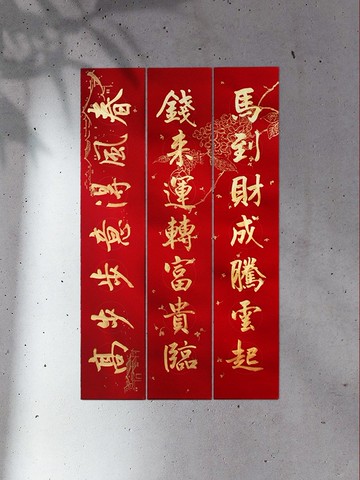 馬到財成騰雲起
錢来運轉富貴臨
春風得意步步高